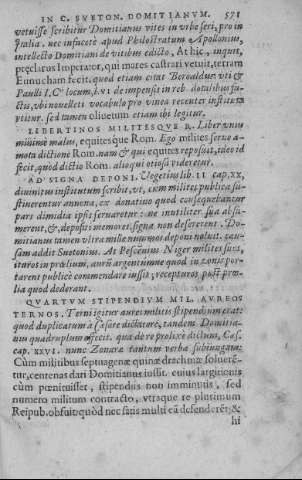 IN C. SVETON. DOMITIANVM. 571
vetuisse scribitur Domitianus vites in vrbe seri, pro in
Italia. nec infacetè apud Philostratum Apollonius,
intellecto Domitiani de vitibus edicto, At hic, inquit,
præclarus Imperator, qui mares castrari vetuit, terram
Eunucham fecit. quod etiam citat Beroaldus. vti &
Pauli I. C. locum, l. vi. de impensis in reb. dotalibus fa-
ctis, vbi nouelleti vocabulo pro vinea recenter instituta
vtitur. sed tamen oliuetum etiam ibi legitur.
LIBERTINOS MILITESQVE R. Liber vnus
minimè malus, equitesque Rom. Ego milites seruo a-
mota dictione Rom. nam & qui equites reposuit, ideo id
fecit, quòd dictio Rom. alioqui otiosa videretur.
AD SIGNA DEPONI. Vegetius lib. II cap. XX,
diuinitus institutum scribit, vt, cum milites publica su-
stinerentur annona, ex donatiuo quod consequebantur
pars dimidia ipsis seruaretur: ne inutiliter sua absu-
merent, &, depositi memores, signa non desererent. Do-
mitianus tamen vltra mille nummos deponi noluit. cau-
sam addit Suetonius. At Pescenius Niger milites suos,
ituros in prælium, auri argentiúmue quod in zonis por-
tarent publicè commendare iussit, recepturos post præ-
lia quod dederant.
QVARTVM STIPENDIVM MIL. AVREOS
TERNOS. Terni igitur aurei militis stipendium erat:
quod duplicatum à Cæsare dictatore, tandem Domitia-
nus quadruplum effecit. qua de re prolixè dictum, Cæs.
cap. XXVI. nunc Zonaræ tantùm verba subiungam:
Cùm militibus septuagenæ quinæ drachmæ soluerē-
tur, centenas dari Domitianus iussit. cuius largitionis
cùm pœnituisset, stipendiis non imminutis, sed
numero militum contracto, vtraque re plurimum
Reipub. obfuit: quòd nec satis multi eā defenderēt; &
hi